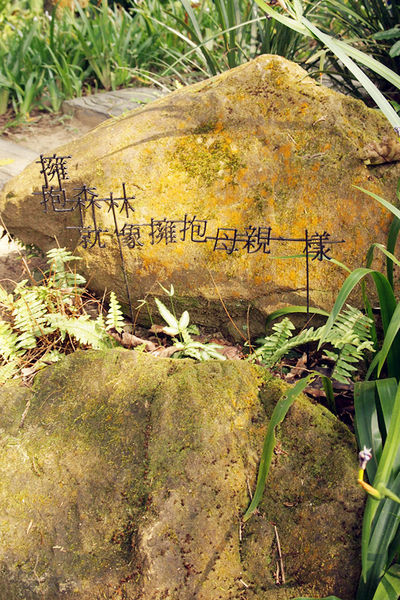 擁
抱森林
就像擁抱母親一樣